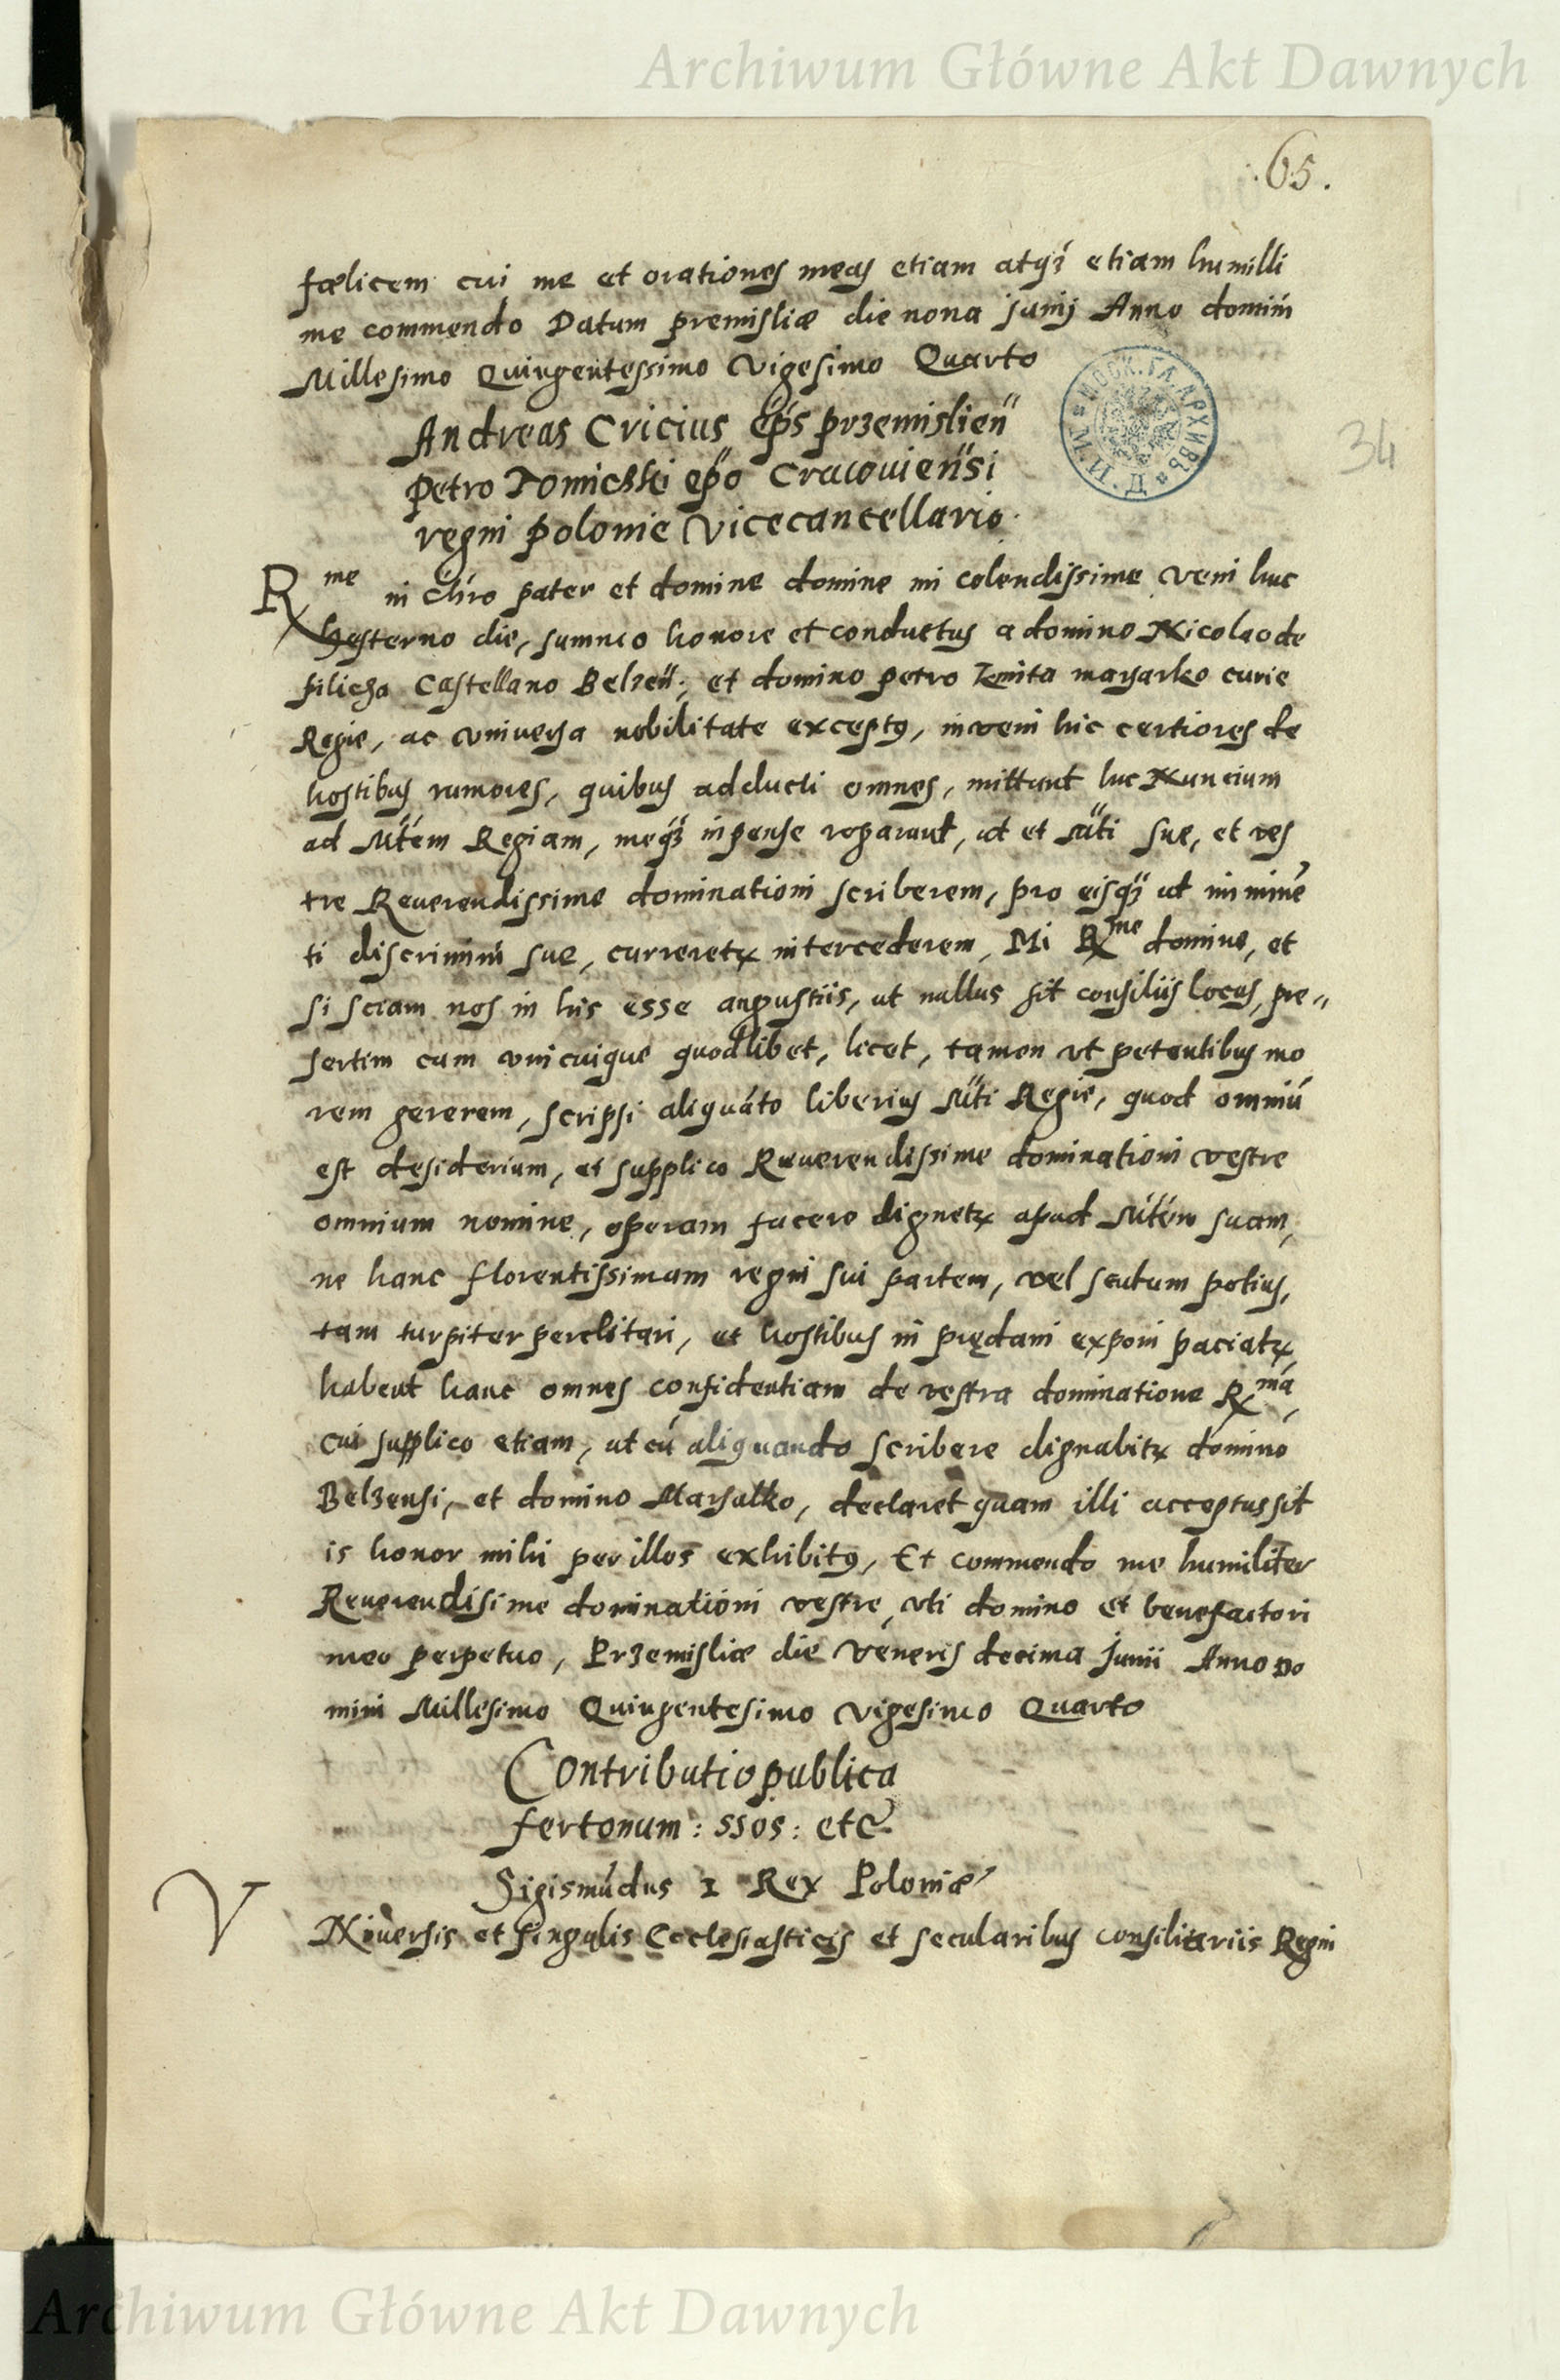 Archiwum Główne Akt Dawnych
.65.
fœlicem cui me et orationes meas etiam atqꝫ etiam humilli
me commendo Datum premisliæ die nona Junij Anno domini
Millesimo Quingentessimo Vigesimo Quarto
34
Andreas Cricius eps przemislien
petro Tomiczki epo Cracouiensi
regni polonie Vicecancellario.
Rme in Chro pater et domine domine mi colendissime veni huc
hesterno die, summo honore et conductus a domino Nicolao de
pilicza Castellano Belzen, et domino petro Kmita marsarko curie
Regie, ac universa nobilitate exceptꝰ, inveni hic certiores de
hostibus rumores, quibus adducti omnes, mittunt huc Nuncium
ad Mtem Regiam, meqꝫ inpense rogarunt, ut et Mti sue, et ves
tre Reuerendissime dominationi scriberem, pro eisqꝫ ut iminē
ti discrimini sue, curreretꝝ intercederem, Mi Rme domine, et
si sciam nos in his esse angustiis, ut nullus sit consiliis locus, pre„
sertim cum unicuique quodlibet, licet, tamen ut petentibus mo
rem gererem, scripsi aliquāto liberius Mti Regie, quod omniū
est desiderium, et supplico Reuerendissime dominationi vestre
omnium nomine, operam facere dignetꝝ apud Mtem suam,
ne hanc florentissimam regni sui partem, vel scutum potius,
tam turpiter perclitari, et hostibus in prędam exponi paciatꝝ,
habent hanc omnes confidentiam de vestra dominatione Rma,
cui supplico etiam, ut cū aliquando scribere dignabitꝝ domino
Belzensi, et domino Marsalko, declaret quam illi acceptus sit
is honor mihi per illos exhibitꝰ, Et commendo me humiliter
Reuerendisime dominationi vestre, uti domino et benefactori
meo perpetuo, Przemisliæ die Veneris decima Junii Anno Do
mini Millesimo Quingentesimo Vigesimo Quarto
Contributio publica
fertonum : ssos : etc
Sigismūdus 1 Rex Poloniæ
V Niuersis et singulis Ecclesiasticis et secularibus consiliariis Regni
Archiwum Główne Akt Dawnych